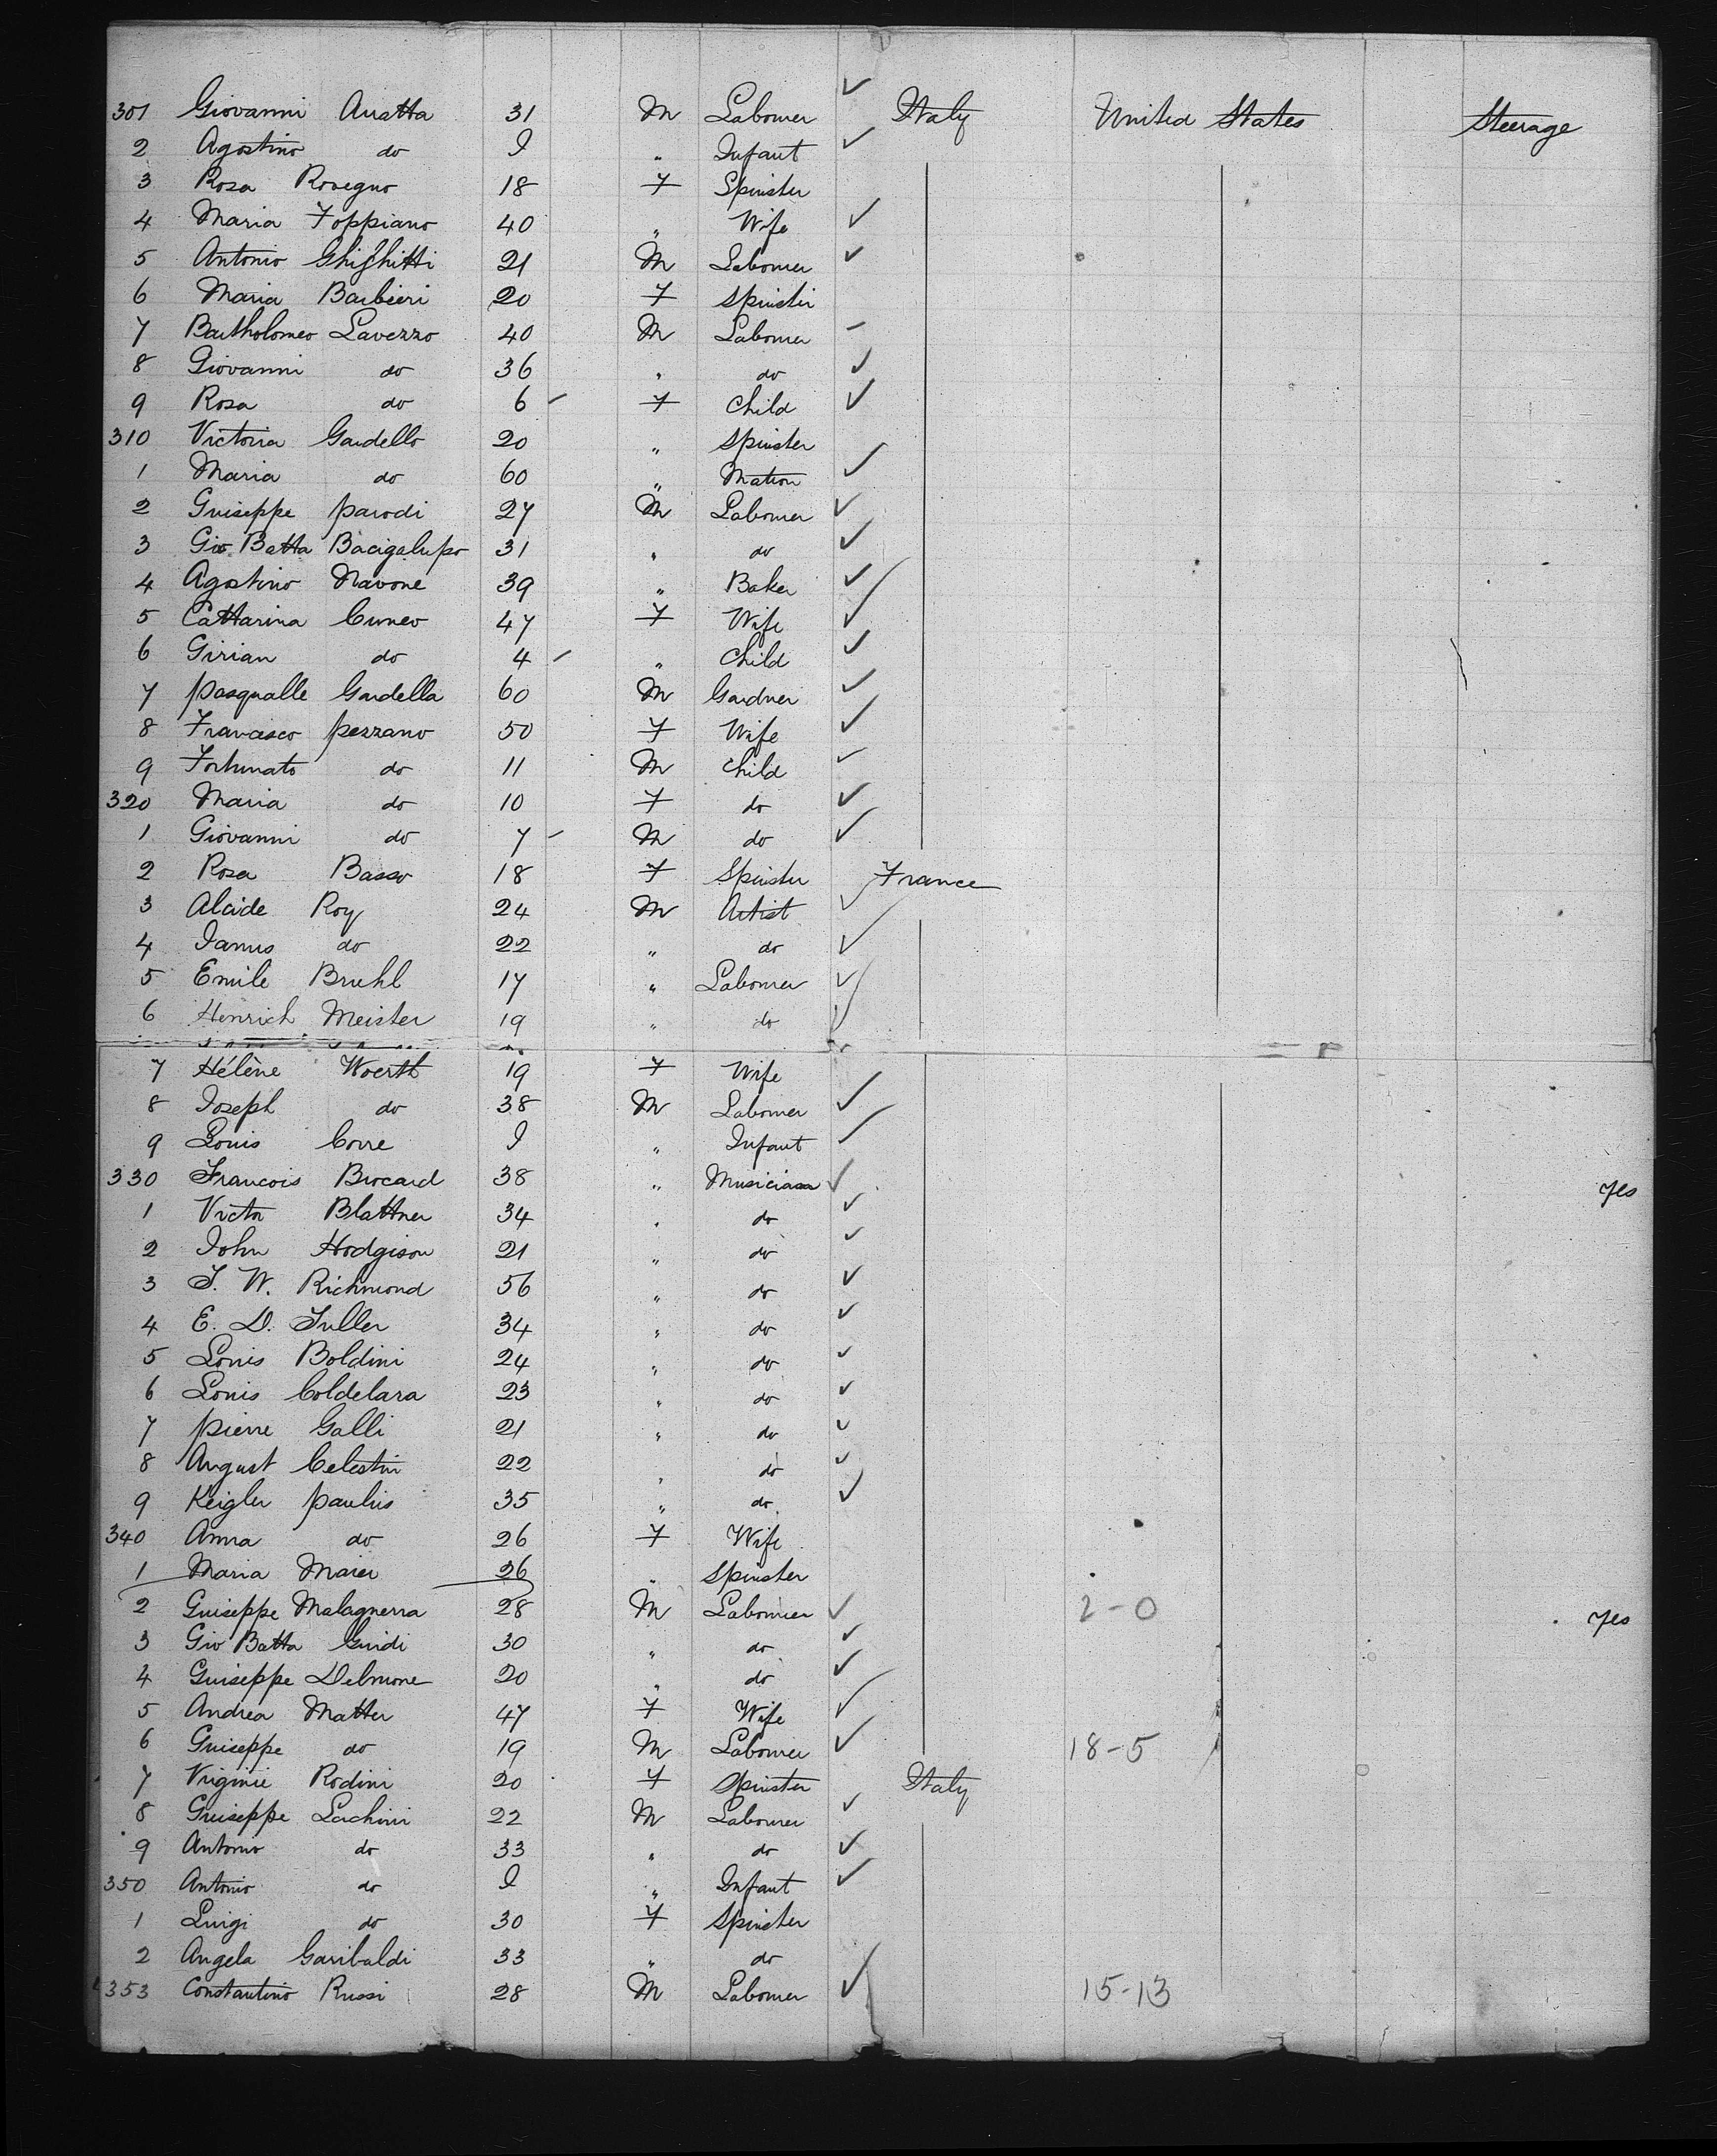 301 Giovanni Auatta 31 M Labourer Italy United States Steerage
2 Agostino do I " Infant
3 Rosa Rovegno 18 F Spinster
4 Maria Foppiano 40 " Wife
5 Antonio Ghighitti 21 M Labourer
6 Maria Barbieri 20 F Spinster
7 Bartholomeo Lavezzo 40 M Labourer
8 Giovanni do 36 " do
9 Rosa do 6 F Child
310 Victoria Gardello 20 " Spinster
1 Maria do 60 " Matron
2 Guiseppe Parodi 27 M Labourer
3 Gio Batta Bacigalupo 31 " do
4 Agostino Navone 39 " Baker
5 Cattarina Cuneo 47 F Wife
6 Girian do 4 " Child
7 Pasqualle Gardella 60 M Gardner
8 Francisco Pezzano 50 F Wife
9 Fortunato do 11 M Child
320 Maria do 10 F do
1 Giovanni do 7 M do
2 Rosa Basso 18 F Spinster France
3 Alcide Roy 24 M Artist
4 Janus do 22 " do
5 Emile Bruhl 17 " Labourer
6 Henrich Meister 19 " do
7 Hélène Woerth 19 F Wife
8 Joseph do 38 M Labourer
9 Louis Corre I " Infant
330 Francois Brocard 38 " Musician yes
1 Victor Blattner 34 " do
2 John Hodgison 21 " do
3 J. W. Richmond 56 " do
4 E. D. Fuller 34 " do
5 Louis Boldini 24 " do
6 Louis Coldelara 23 " do
7 Pierre Galli 21 " do
8 August Celestin 22 " do
9 Keigler Paulus 35 " do
340 Anna do 26 F Wife
1 Maria Maier 26 " Spinster
2 Guiseppe Malagnerra 28 M Labourer 2-0 yes
3 Gio Batta Guidi 30 " do
4 Guiseppe Delmone 20 " do
5 Andrea Matter 47 F Wife
6 Guiseppe do 19 M Labourer 18-5
7 Virginie Rodini 20 F Spinster Italy
8 Guiseppe Lachini 22 M Labourer
9 Antonio do 33 " do
350 Antonio do I " Infant
1 Luigi do 30 F Spinster
2 Angela Garibaldi 33 " do
353 Constantino Russi 28 M Labourer 15-13